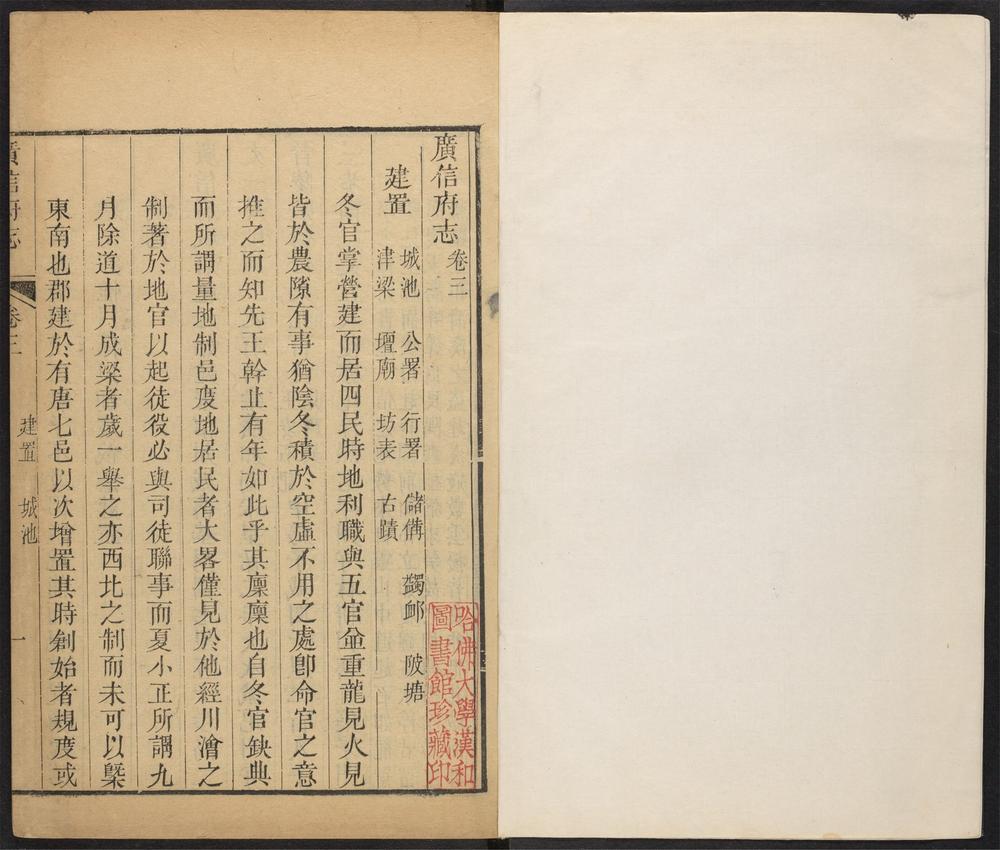 廣信府志 卷三
建置 城池 公署 行署 儲備 蠲卹 陂塘
津梁 壇廟 坊表 古蹟
冬官掌營建而居四民時地利職與五官並重龍見火見
皆於農隙有事猶陰冬積於空虛不用之處卽命官之意
推之而知先王幹止有年如此乎其廩廩也自冬官缺典
而所謂量地制邑度地居民者大畧僅見於他經川澮之
制著於地官以起徒役必與司徒聯事而夏小正所謂九
月除道十月成梁者歲一舉之亦西北之制而未可以槩
東南也郡建於有唐七邑以次增置其時創始者規度或
廣信府志
卷三
建置 城池
一
哈佛大學漢和
圖書館珍藏印